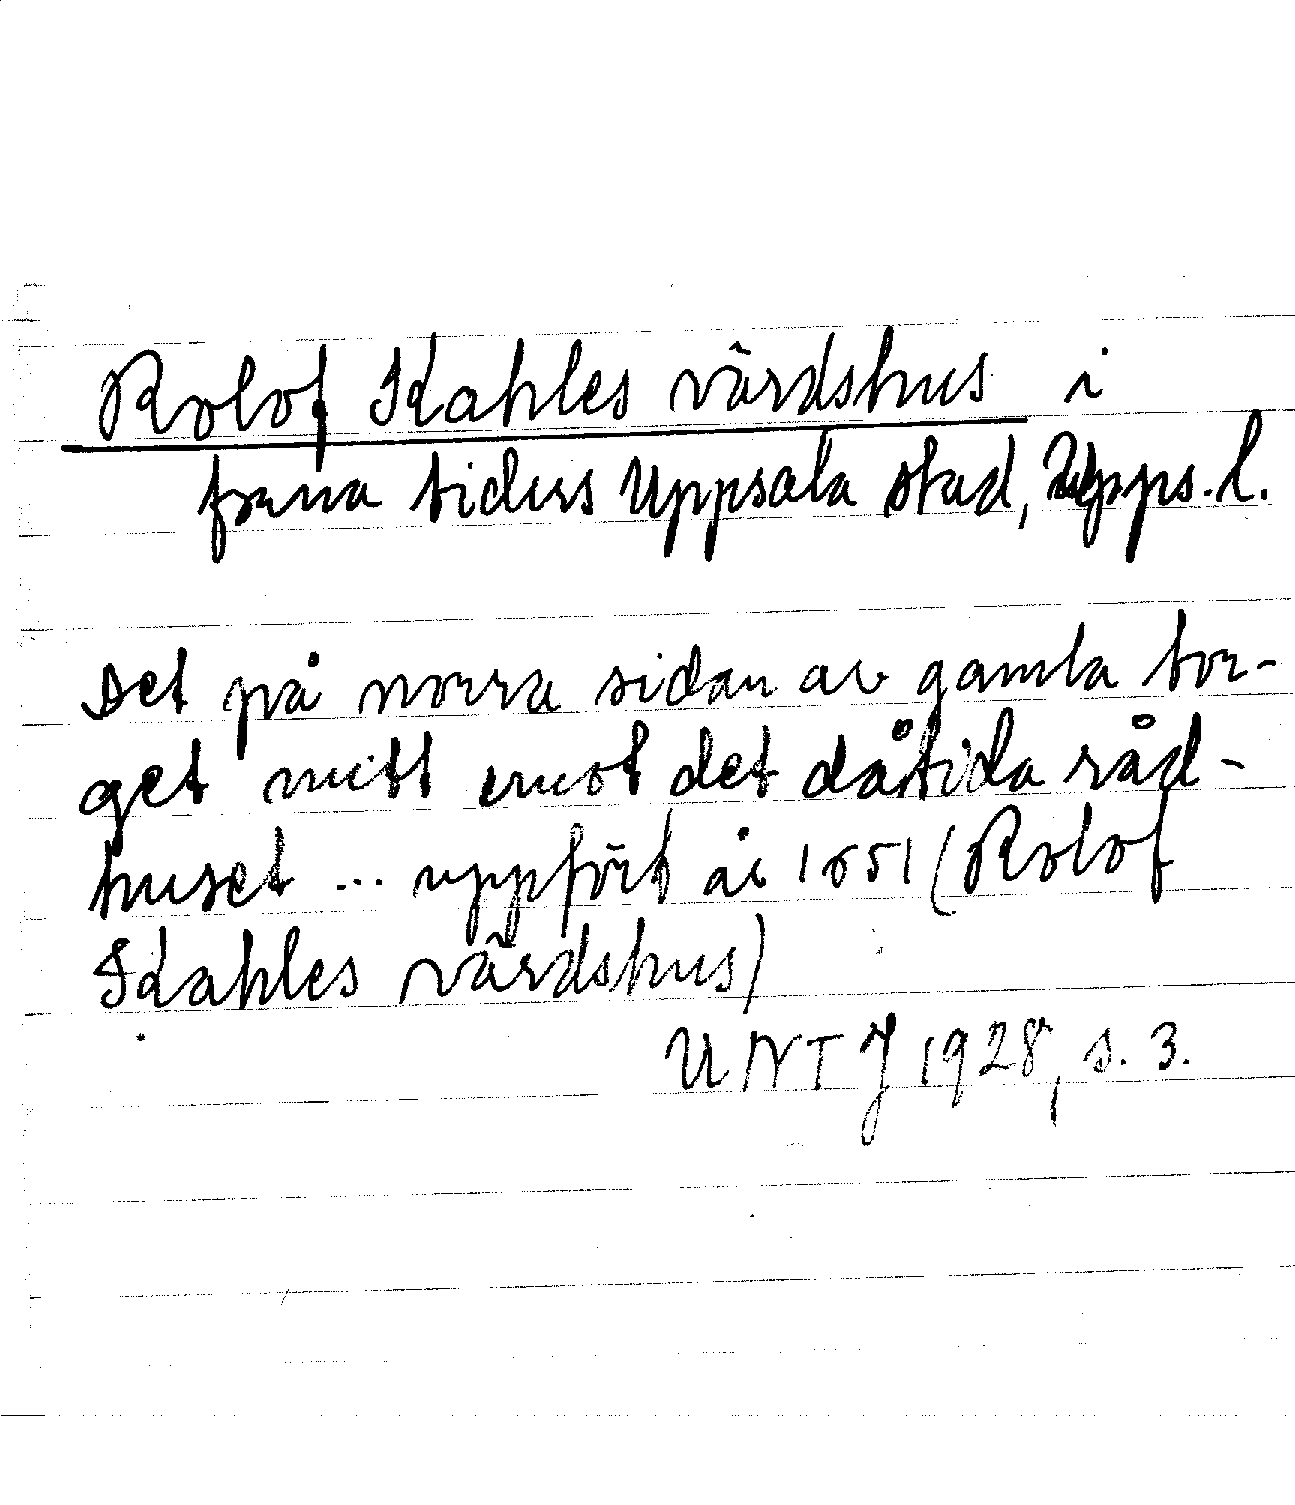 Rolof Kahles värdshus i
forna tiders Uppsala stad, Upps. l.
Det på norra sidan av gamla tor-
get mitt emot det dåtida råd-
huset ... uppfört år 1651 (Rolof
Kahles värdshus)
UNT J 1928, s. 3.